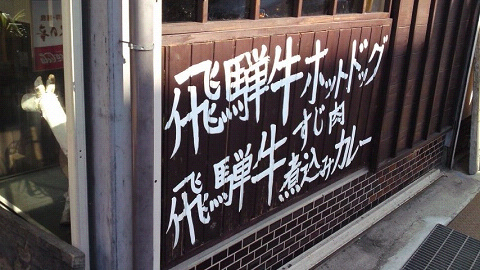 飛騨牛ホットドッグ
飛騨牛すじ肉煮込みカレー